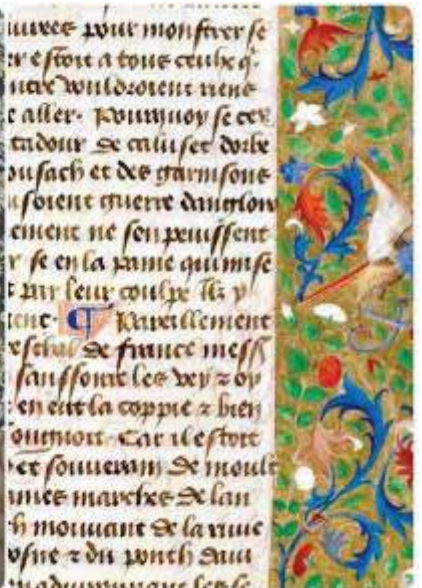 iuvres pour monstrer se
er estoit a tous ceulx q.
ultre vouldroient riens
e aller. Pourquoy se ces
tadour de caluset dorbe
oufach et des garnisons
soient guerre dangloi
ement ne sen peuissent
r se en la paine qui mise
t par leur coulpe Ilz y
ient. ¶ Pareillement
reschal de france mess
sanssoire les vey z oy
en eut la coppie z bien
ougnoit. Car il estoit
et souverain de moult
aines marches de lan
h mouvant de la rive
osne z du ponth davi